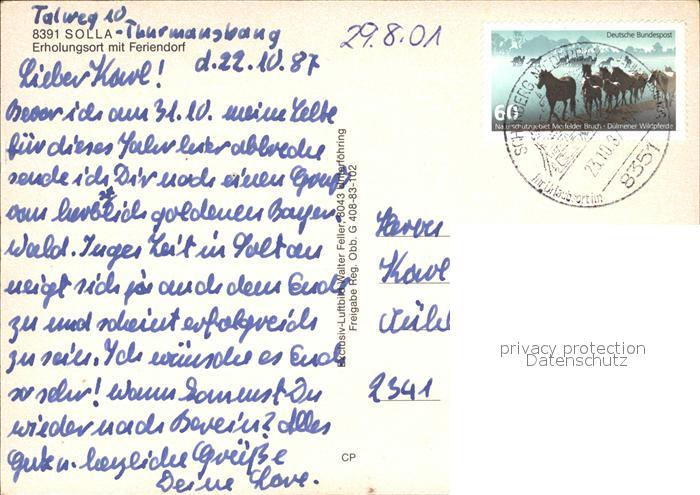 Talweg 10
8391 SOLLA - Thurmansbang
Erholungsort mit Feriendorf
d. 22.10.87
29.8.01
Lieber Karl!
Bevor ich am 31.10. meine Zelte
für dieses Jahr hier abbreche
sende ich Dir noch einen Gruß
vom herbstlich goldenen Bayer.
Wald. Inges Zeit in
neigt sich ja auch dem Ende
zu und scheint erfolgreich
zu sein. Ich wünsche es Euch
so sehr! Wann kommst Du
wieder nach Berein? Alles
Gute u. herzliche Grüße
Deine Lore.
Exclusiv-Luftbild Walter Feller, 8043 Unterföhring
Freigabe Reg. Obb. G 408-83-102
CP
Herrn
Karl
2341
Deutsche Bundespost
60
Naturschutzgebiet Merfelder Bruch · Dülmener Wildpferde
SCHÖNBERG
Ihr Urlaubsort im
23.10.87
8351
privacy protection
Datenschutz